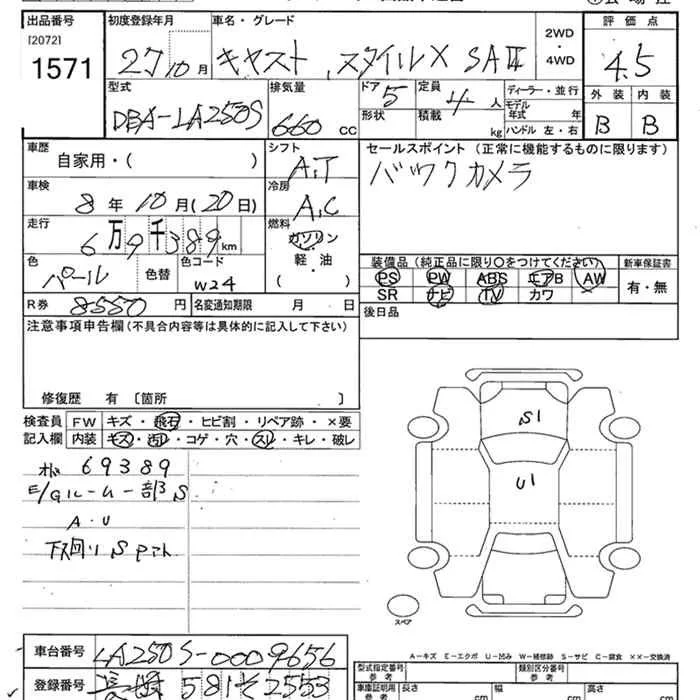 出品番号 初度登録年月 車名・グレード 2WD ・ 4WD 評価点
[2072]
1571 27 10月 キャスト スタイルX SAⅡ 4.5
型式 排気量 ドア 定員 ディーラー・並行 外装 内装
DBA-LA250S 660 cc 5 4人 モデル年式 年 B B
形状 積載 kg ハンドル 左・右
車歴 シフト セールスポイント (正常に機能するものに限ります)
自家用・( ) A.T バックカメラ
車検 冷房
8年10月(20日) A.C
走行 燃料
6万9千389km ガソリン
色 色替 色コード 軽・油 装備品(純正品に限り○をつけてください) 新車保証書
パール W24 ( ) PS PW ABS エアB AW 有・無
SR ナビ TV カワ
R券 8550円 名変通知期限 月 日 後日品
注意事項申告欄(不具合内容等は具体的に記入して下さい)
修復歴 有 〔箇所
検査員 FW キズ・飛石・ヒビ割・リペア跡・×要
記入欄 内装 キズ・汚レ・コゲ・穴・スレ・キレ・破レ
S1
U1
69389
E/Gルーム一部S
A・U
下廻りS
スペア
A-キズ E-エクボ U-凹み W-補修跡 S-サビ C-腐食 ××-交換済
車台番号 LA250S-0009656
登録番号 長崎 581 そ 2553
型式指定番号 類別区分番号
車庫証明用参考 長さ cm 幅 cm cm